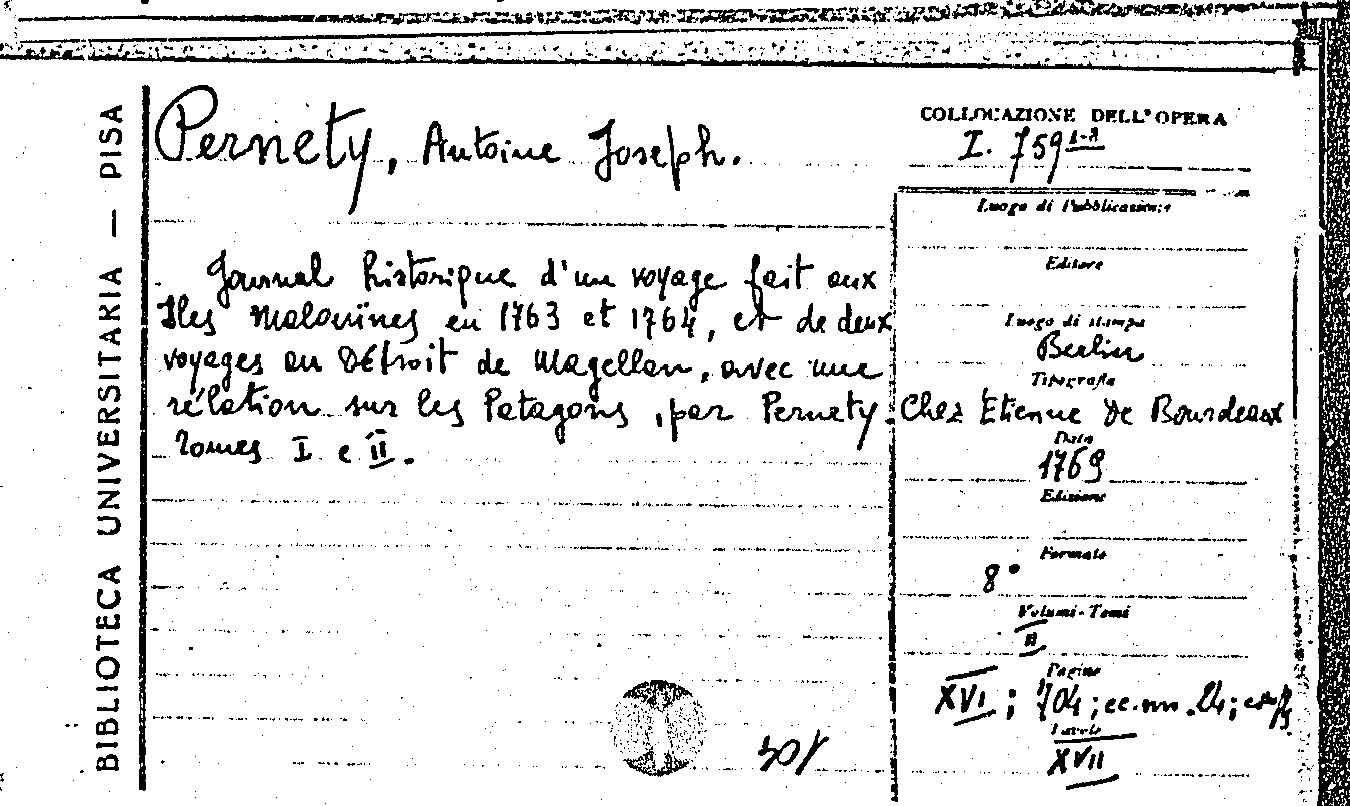 BIBLIOTECA UNIVERSITARIA — PISA
Pernety, Antoine Joseph.
Journal historique d'un voyage fait aux
Iles Malouïnes en 1763 et 1764, et de deux
voyages au Détroit de Magellan, avec une
rélation sur les Patagons, par Pernety.
Tomes I e II.
104
COLLOCAZIONE DELL'OPERA
I. 759 1-2
Luogo di Pubblicazione
Editore
Luogo di stampa
Berlin
Tipografia
Chez Etienne de Bourdeaux
Data
1769
Edizione
Formato
8°
Volumi-Tomi
II
Pagine
XVI; 704; cc.nn.24;
Tavole
XVII